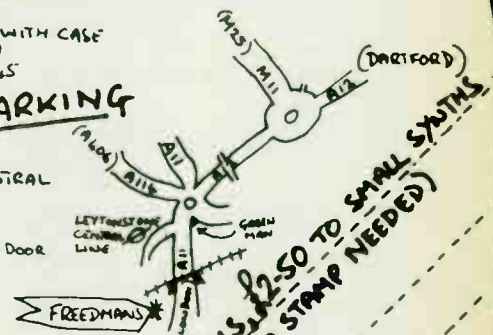 WITH CASE
ARKING
STRAL
DOOR
(M25)
M11
(DARTFORD)
A12
A11
(A406)
A114
LEYTONSTONE
CENTRAL
LINE
GREEN
MAN
A11
FREEDMANS
£2.50 TO SMALL SYNTHS
STAMP NEEDED)